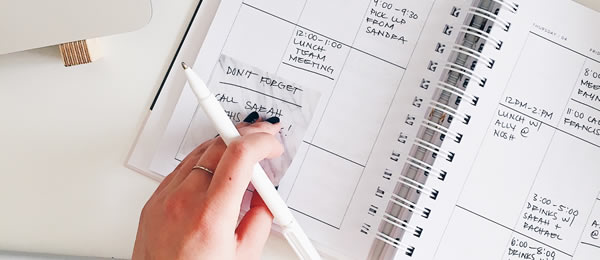 9:00-9:30
PICK UP
FROM
SANDRA
12:00-1:00
LUNCH
TEAM
MEETING
DON'T FORGET
CALL SARAH
THURSDAY, 04
12PM-2PM
LUNCH W/
ALLY @
NOSH
3:00-5:00
DRINKS W/
SARAH +
RACHAEL
6:00-8:00
8:00
11:00
CALL